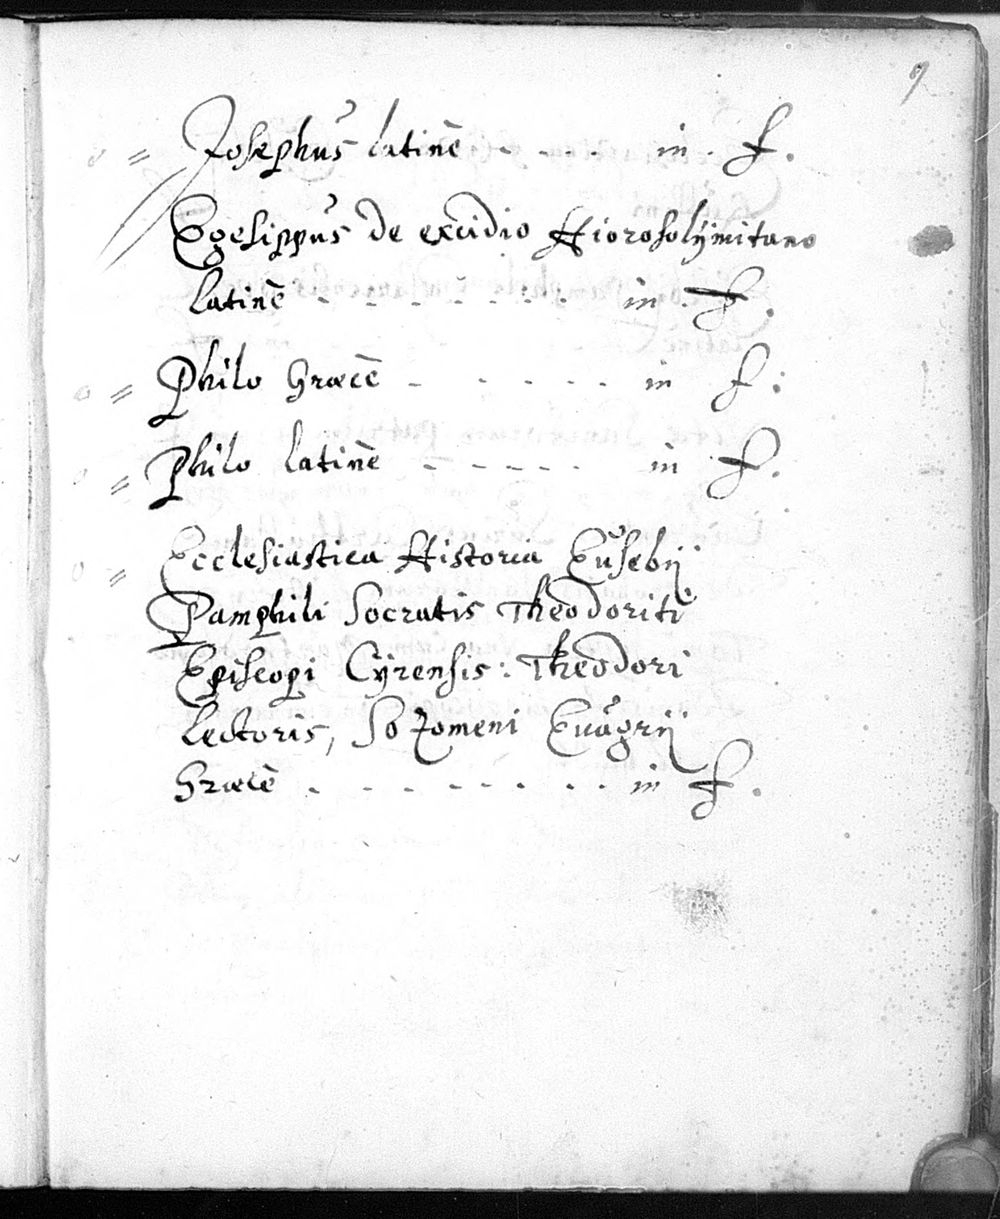 9
o = Josephus latinè - - - in . f.
Egesippus de excidio Hierosolÿmitano
latinè - - - - - - - in . f.
o = Philo Græcè - - - - - - in f.
o = Philo latinè - - - - - - in f.
o = Ecclesiastica Historia Eusebij
Pamphili Socratis Theodoriti
Episcopi Cÿrensis: Theodori
Lectoris, Sozomeni Euagrij
Græcè . - - - - - - . . in f.